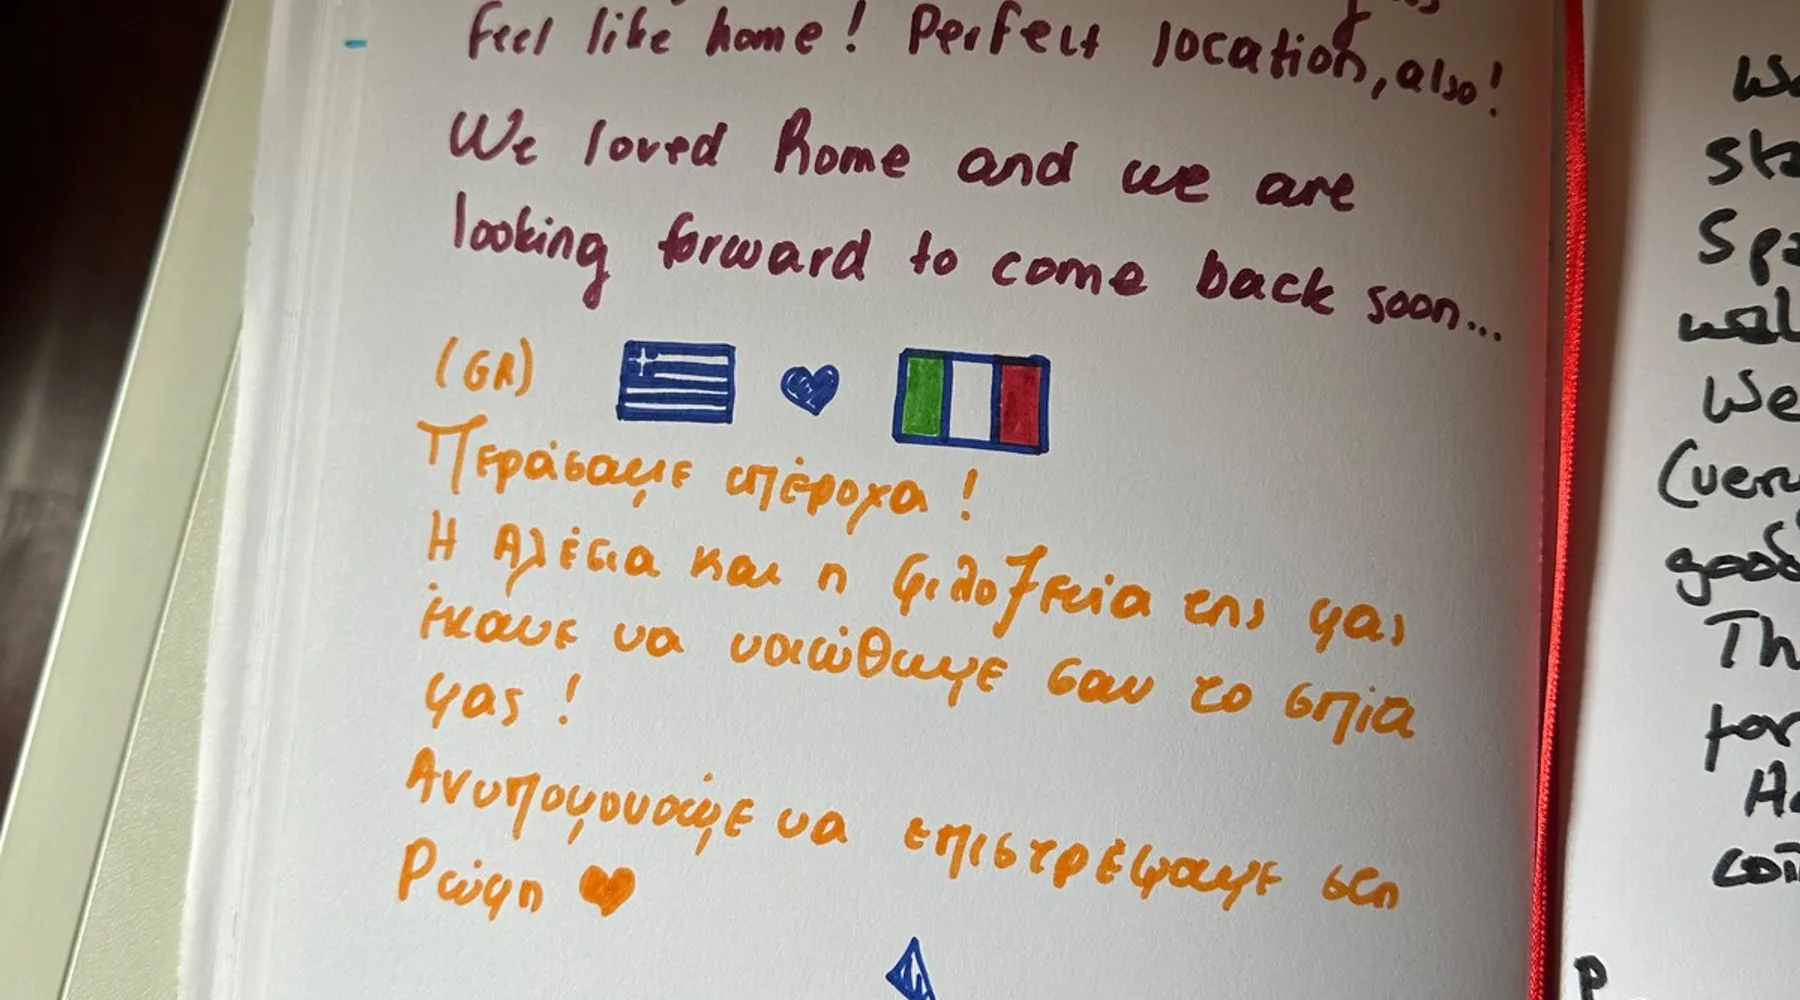 feel like home! Perfect location, also!
We loved Rome and we are
looking forward to come back soon...
(GR)
Περάσαμε υπέροχα!
Η Αλέσια και η φιλοξενία της μας
έκανε να νοιώθουμε σαν το σπίτι
μας!
Ανυπομονούμε να επιστρέψουμε στη
Ρώμη
We
We
good
Th
for